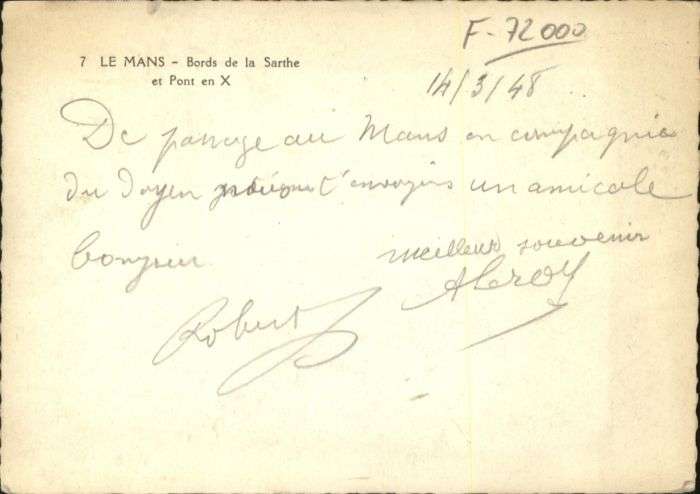 F-72000
7 LE MANS – Bords de la Sarthe
et Pont en X
14/3/48
De passage au Mans en compagnie
du Doyen nous t'envoyons un amicale
bonjour
meilleur souvenir
Robert